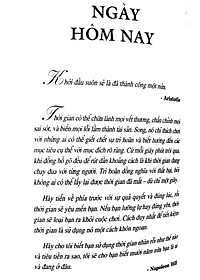 NGÀY
HÔM NAY
Khởi đầu suôn sẻ là đã thành công một nửa.
- Aristotle
Thời gian có thể chữa lành mọi vết thương, chấn chỉnh mọi
sai sót, và biến mọi lỗi lầm thành tài sản. Song, nó chỉ thích
những ai có thể giết chết sự trì hoãn và biết hướng đến các
mục tiêu cụ thể với mục đích rõ ràng. Cứ mỗi giây trôi qua
khi đồng hồ gõ đều để rút dần khoảng cách là khi thời gian đang
chạy đua với từng người. Trì hoãn đồng nghĩa với thất bại, bởi
không ai có thể lấy lại được thời gian đã mất – dù chỉ một giây.
Hãy tiến về phía trước với sự quả quyết và đúng đắn, rồi
thời gian sẽ yêu mến bạn. Nếu bạn lưỡng lự hay đứng yên, thời
gian sẽ loại bạn ra khỏi cuộc chơi. Cách duy nhất để tiết kiệm
thời gian là sử dụng nó một cách khôn ngoan.
Hãy cho tôi biết bạn sử dụng thời gian nhàn rỗi như thế nào
và tiêu tiền ra sao, tôi sẽ cho bạn biết mười năm nữa bạn là ai
và đang ở đâu.
- Napoleon Hill